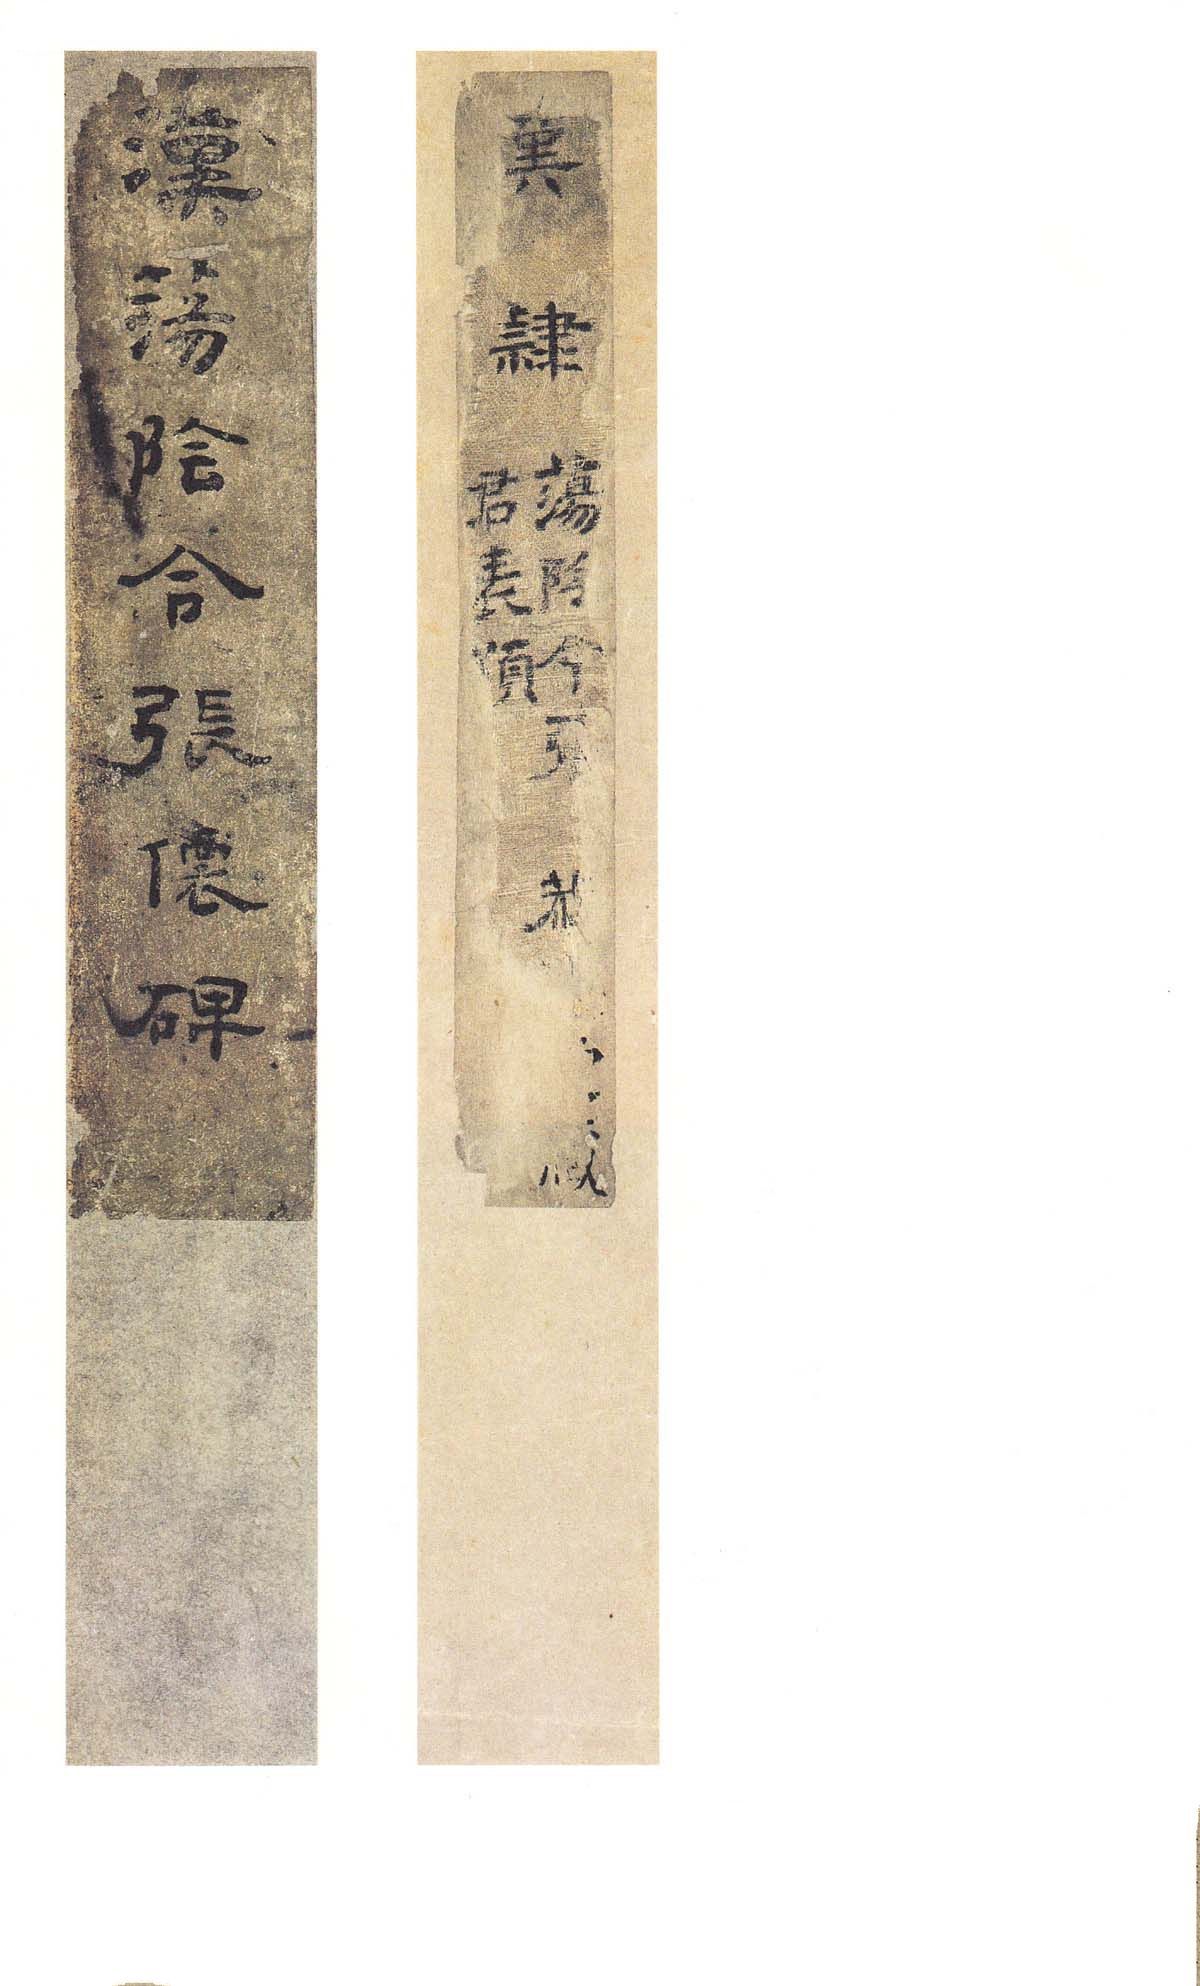 漢隸
蕩陰令張
君表頌
漢蕩陰令張僊碑